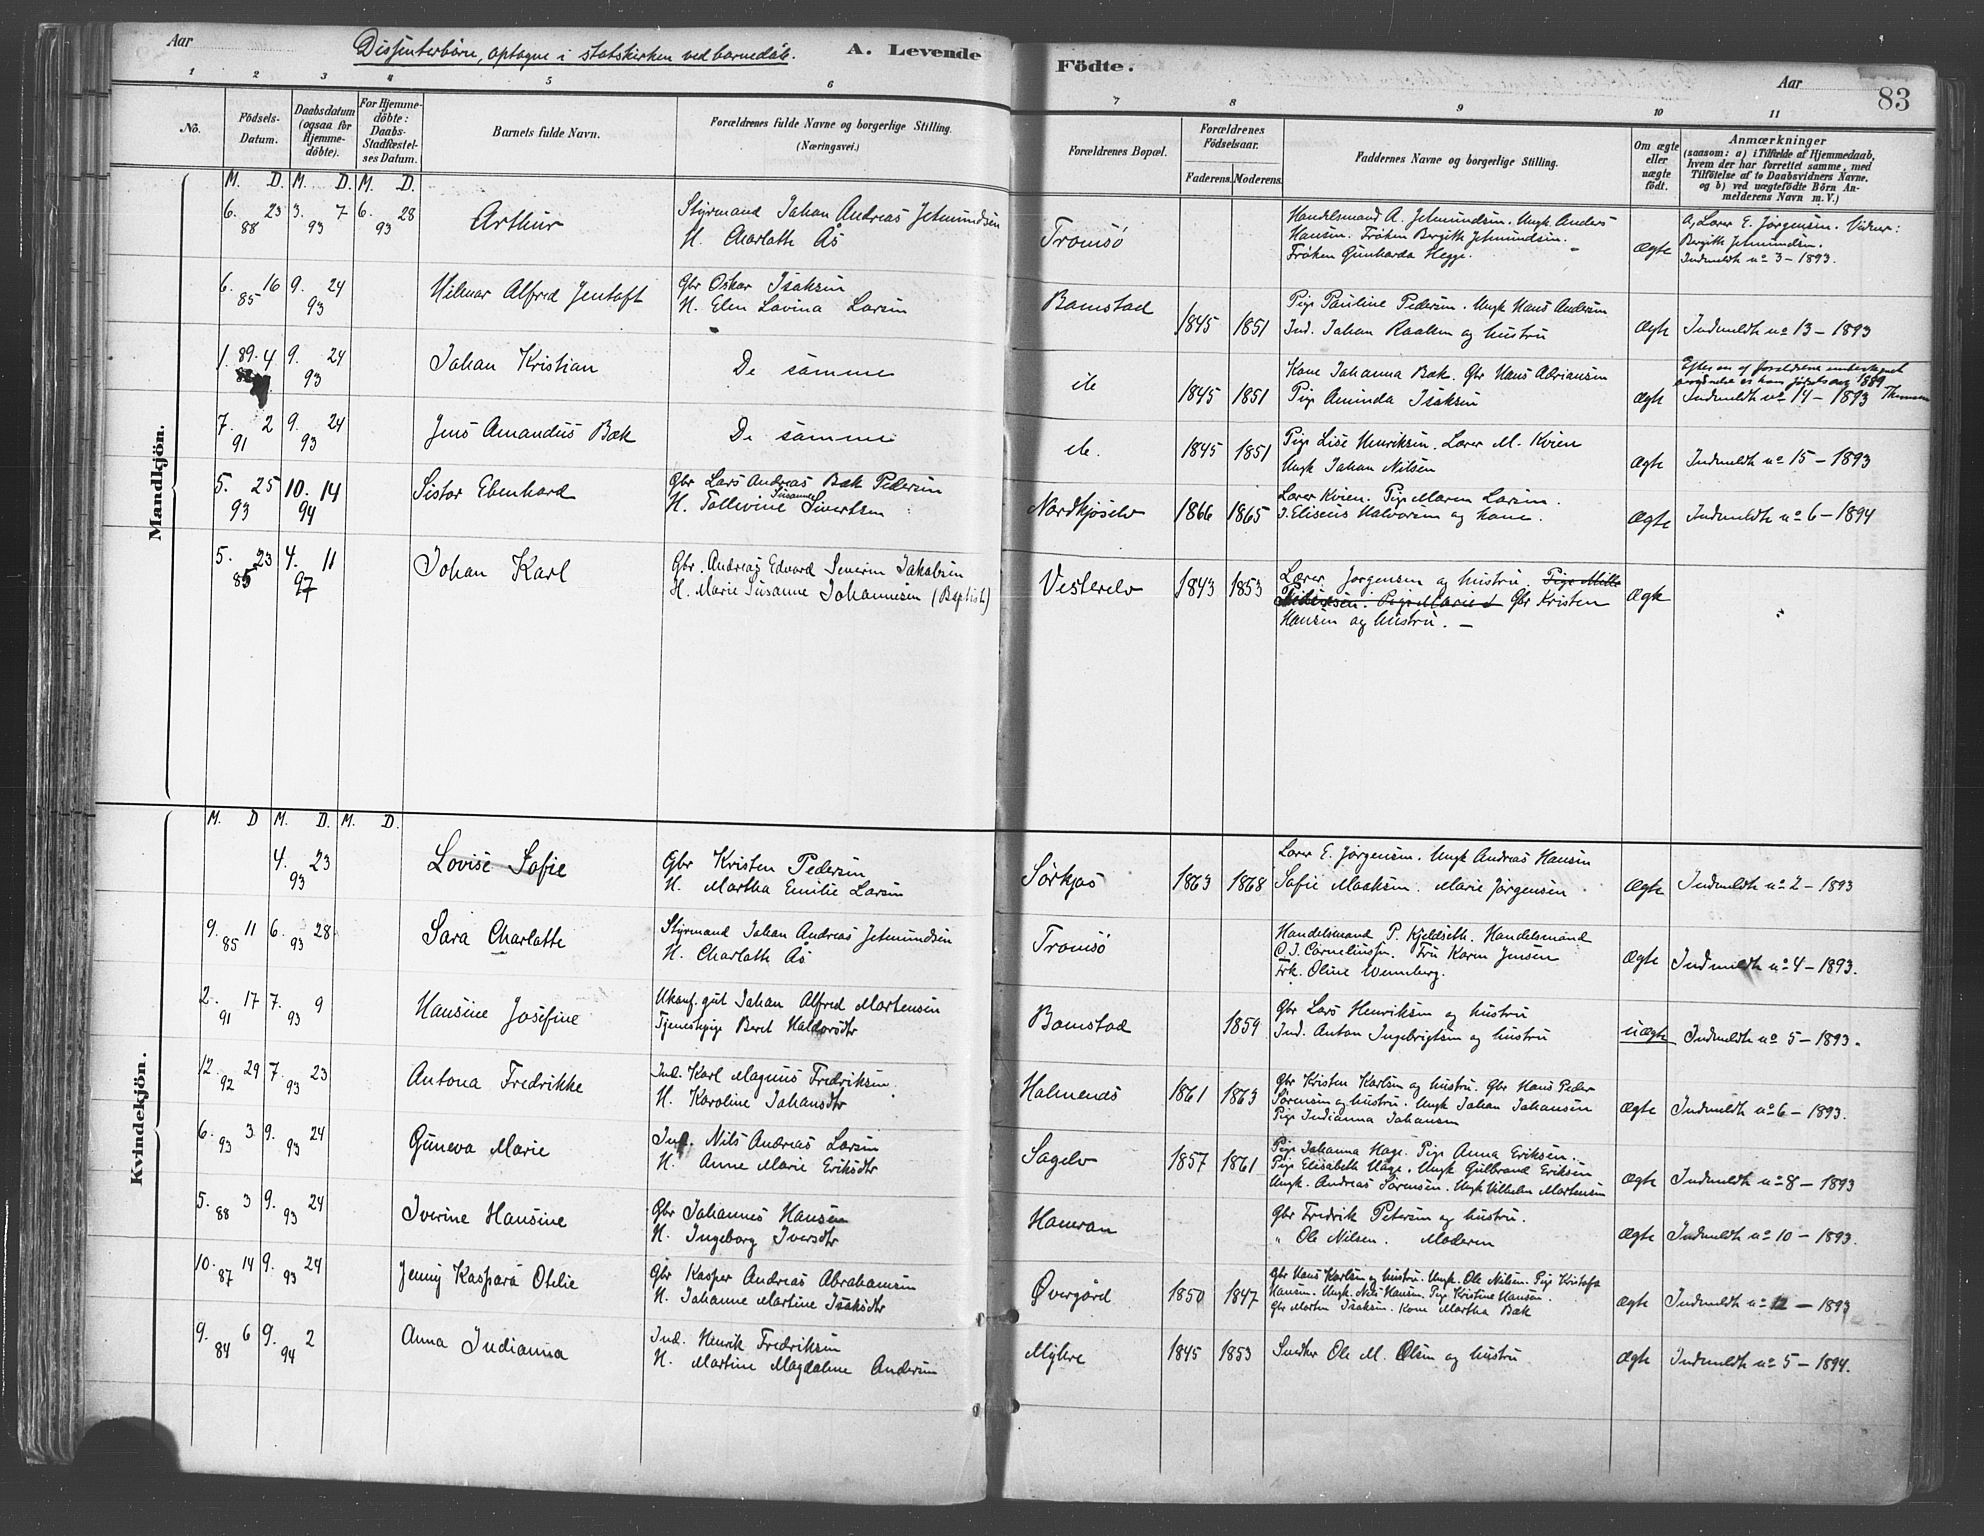 Aar
Dissenterbörn, optagne i statskirken ved barnedåb.
A. Levende Födte.
Aar
83
1 2 3 4 5 6 7 8 9 10 11
No.
Födsels-Datum.
Daabsdatum (ogsaa for Hjemme-döbte).
For Hjemme-döbte: Daabs-Stadfæstel-ses Datum.
Barnets fulde Navn.
Forældrenes fulde Navne og borgerlige Stilling. (Næringsvei.)
Forældrenes Bopæl.
Forældrenes Födselsaar.
Faderens. Moderens.
Faddernes Navne og borgerlige Stilling.
Om ægte eller uægte födt.
Anmærkninger
(saasom: a) i Tilfælde af Hjemmedaab, hvem der har forrettet samme, med Tilföielse af to Daabsvidners Navne. og b) ved uægtefödte Börn An-melderens Navn m. V.)
Mandkjön.
M. D. M. D. M. D.
6. 23 88 3. 7 93 6. 28 93 Arthur
Styrmand Johan Andreas Jetmundsen
H. Charlotte Ås
Tromsö
Handelsmand A. Jetmundsen. Ungk Anders
Hansen. Fröken Bergitte Jetmundsen.
Fröken Gunharda Hegge.
ægte
a, Lærer E. Jørgensen. Vidner:
Bergitte Jetmundsen.
Indmeldt no 3 – 1893.
6. 16 85 9. 24 93 Hilmar Alfred Jentoft
Gbr Oskar Isaksen
H. Elen Lovina Larsen
Bomstad 1845 1851
Pige Pauline Pedersen. Ungk Hans Andersen
Ind. Johan Raaken og hustru
ægte
Indmeldt no 13 – 1893
1. 89. 4 9. 24 93 Johan Kristian
De samme
ib 1845 1851
Kone Johanna Bæk. Gbr Hans Adriansen
Pige Aminda Isaksen
ægte
Efter en af forældrene underskrevet
er hans fødselsaar 1889
Indmeldt no 14 – 1893
7. 2 91 9. 24 93 Jens Amandus Bæk
De samme
ib. 1845 1851
Pige Lise Henriksen. Lærer M. Kvien
Ungk Johan Nilsen
ægte
Indmeldt no 15 – 1893
5. 25 93 10. 14 94 Sistor Ebenhard
Gbr Lars Andreas Bæk Pedersen
H. Tollevine Susanne Sivertsen
Nordkjoselv 1866 1865
Lærer Kvien. Pige Maren Larsen.
I. Eliseus Halvorsen og kone.
ægte
Indmeldt no 6 – 1894
5. 23 85 4. 11 97 Johan Karl
Gbr. Andreas Edvard Severin Jakobsen
H. Marie Susanne Johannesen (Baptist)
Vesterelv 1843 1853
Lærer Jørgensen og hustru. Pige Mille
Pedersen. Pige Marie Gbr Kristen
Hansen og hustru. –
ægte
Kvindekjön.
M. D M. D. M. D.
4. 23 93 Lovise Sofie
Gbr Kristen Pedersen
H. Martha Emilie Larsen
Sörkjos 1863 1868
Lærer E. Jørgensen. Ungk Andreas Hansen
Sofie Maaksen. Marie Jørgensen
ægte
Indmeldt no 2 – 1893
9. 11 85 6. 28 93 Sara Charlotte
Styrmand Johan Andreas Jetmundsen
H. Charlotte Ås
Tromsö
Handelsmand P. Kjeldseth. Handelsmand
C. J. Corneliussen. Fru Karen Jensen
Frk. Oline Wennberg.
ægte
Indmeldt no 4 – 1893.
2. 17 91 7. 9 93 Hansine Josefine
Ukonf. gut Johan Alfred Mortensen
Tjenestpige Beret Haldorsdtr
Bomstad 1859
Gbr Lars Henriksen og hustru
Ind. Anton Ingebrigtsen og hustru
uægte
Indmeldt no 5 – 1893.
12. 29 92 7. 23 93 Antona Fredrikke
Ind. Karl Magnus Fredriksen
H. Karoline Johansdtr
Holmenæs 1861 1863
Gbr Kristen Karlsen og hustru. Gbr Hans Peder
Sörensen og hustru. Ungk Johan Johansen
Pige Indianna Johansen
ægte
Indmeldt no 6 – 1893.
6. 3 93 9. 24 93 Guneva Marie
Ind. Nils Andreas Larsen
H. Anne Marie Eriksdtr
Sagelv 1857 1861
Pige Johanna Hage. Pige Anna Eriksen.
Pige Elisabeth Hage. Ungk Gulbrand Eriksen
Ungk. Andreas Sørensen. Ungk Vilhelm Mortensen
ægte
Indmeldt no 8 – 1893
5. 3 88 9. 24 93 Iverine Hansine
Gbr Johannes Hansen
H. Ingeborg Iversdtr
Hamran
Gbr Fredrik Petersen og hustru.
" Ole Nilsen. Moderen
ægte
Indmeldt no 10 – 1893.
10. 14 87 9. 24 93 Jenny Kaspara Otelie
Gbr Kasper Andreas Abrahamsen
H. Johanne Martine Isaksdtr
Øvergård 1850 1847
Gbr Hans Karlsen og hustru. Ungk. Ole Nilsen. Pige Kristofa
Hansen. Ungk. Nils Hansen. Pige Kristine Hansen.
Gbr Morten Isaksen. Kone Martha Bæk
ægte
Indmeldt no 12 – 1893
9. 6 84 9. 2 94 Anna Indianna
Ind. Henrik Fredriksen
H. Martine Magdalene Andersen
Myhre 1845 1853
Snedker Ole M. Olsen og hustru
ægte
Indmeldt no 5 – 1894.